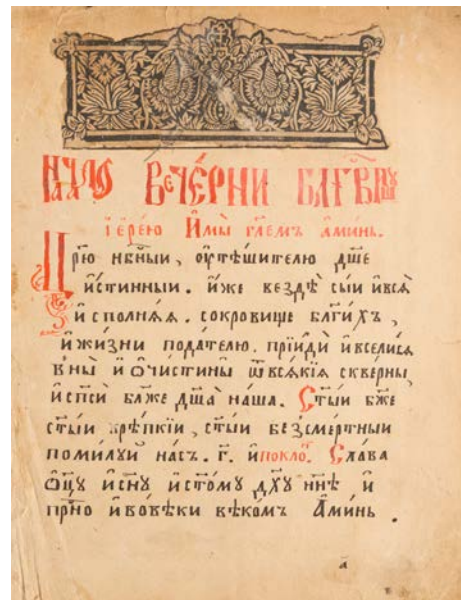 Начало вечерни блгвившу
іерею и мы глемъ аминь.
Црю нбныи, оутѣшителю дше
истинныи. иже вездѣ сыи и вся
исполняя. сокровище блгихъ,
и жизни подателю. прїиди и вселися
в ны и ѡчисти ны ѿ всякїя скверны,
и спси бла҃же дша наша. Стыи бже
стыи крѣпкїи, стыи безсмертныи
помилуи насъ. г. и покло. Слава
ѡцу и сну и стому дху ннѣ и
прно и во вѣки вѣкомъ Аминь.
а